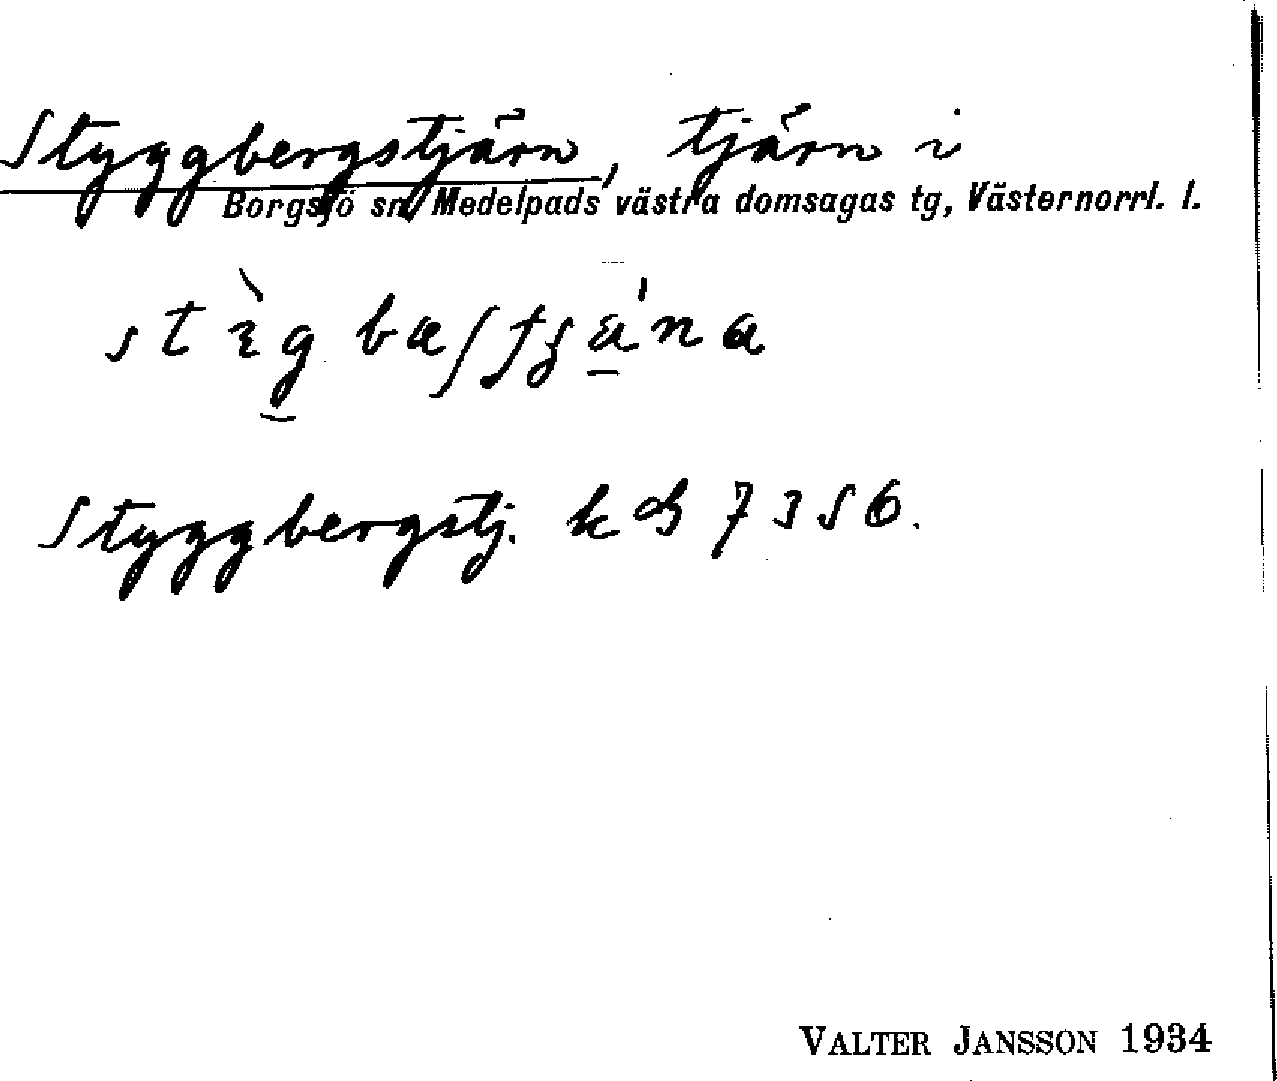 Styggbergstjärn, tjärn i
Borgsjö sn, Medelpads västra domsagas tg, Västernorrl. l.
Styggbergstj. k ch 7356.
VALTER JANSSON 1934